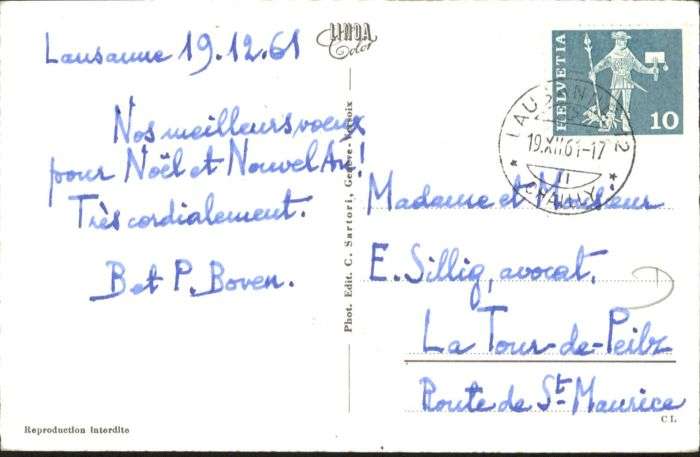 Lausanne 19.12.61
Nos meilleurs voeux
pour Noël et Nouvel An!
Très cordialement.
B et P. Boven.
Reproduction interdite
LINDA
Color
Phot. Edit. C. Sartori, Genève-Vernoix
HELVETIA
10
LAUSANNE 12
19.XII.61-17
CHAILLY
Madame et Monsieur
E. Sillig, avocat.
La Tour-de-Peilz
Route de St. Maurice
CL